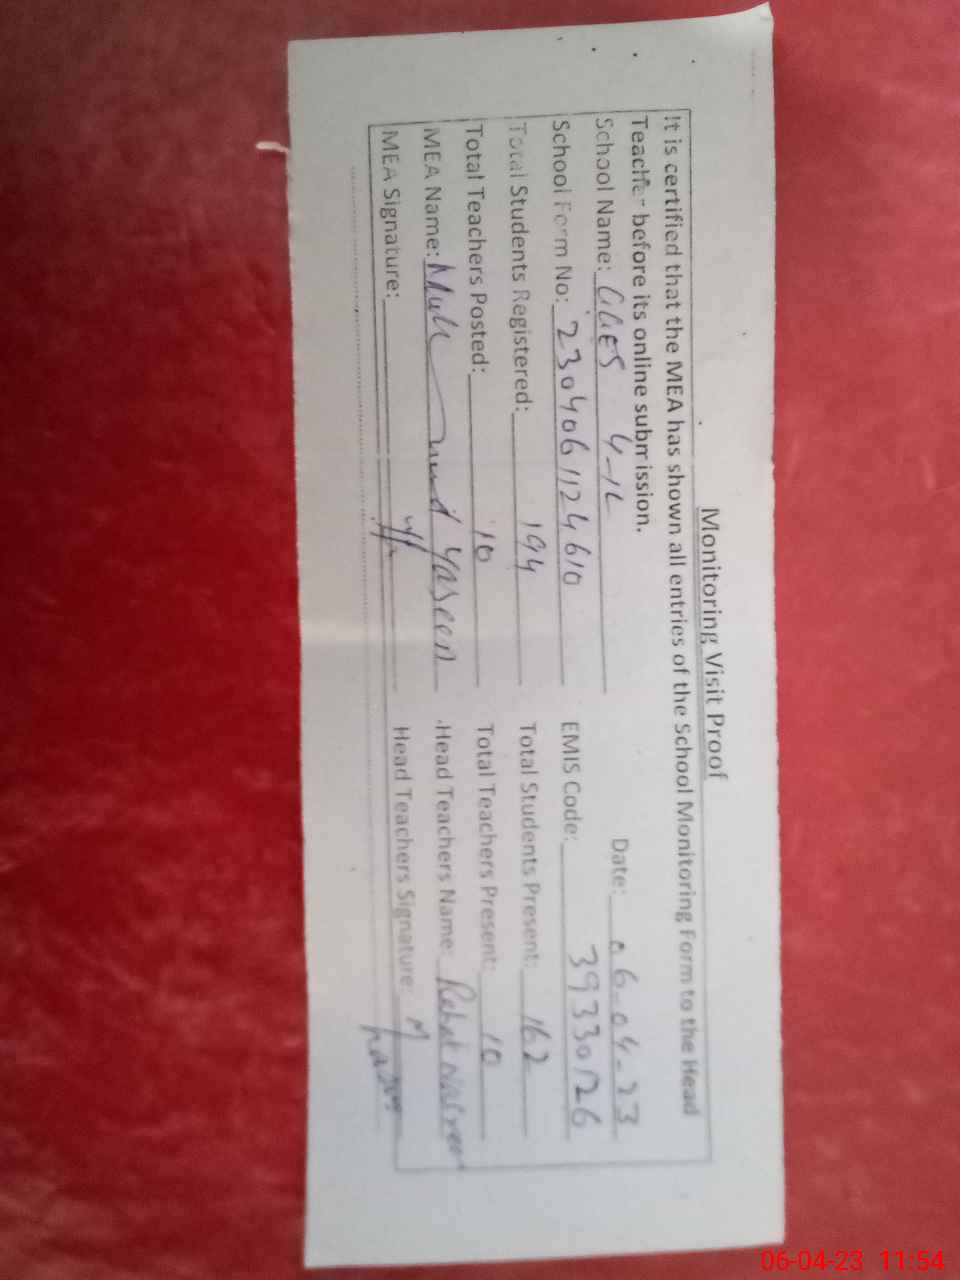 Monitoring Visit Proof
It is certified that the MEA has shown all entries of the School Monitoring Form to the Head
Teacher before its online submission.
Date: 06-04-23
School Name: GGES 4-1L
School Form No: 2304061124610 EMIS Code: 39330126
Total Students Registered: 194 Total Students Present: 162
Total Teachers Posted: 10 Total Teachers Present: 10
MEA Name: Muhammad Yaseen Head Teachers Name: Rahat
MEA Signature: Head Teachers Signature:
06-04-23 11:54